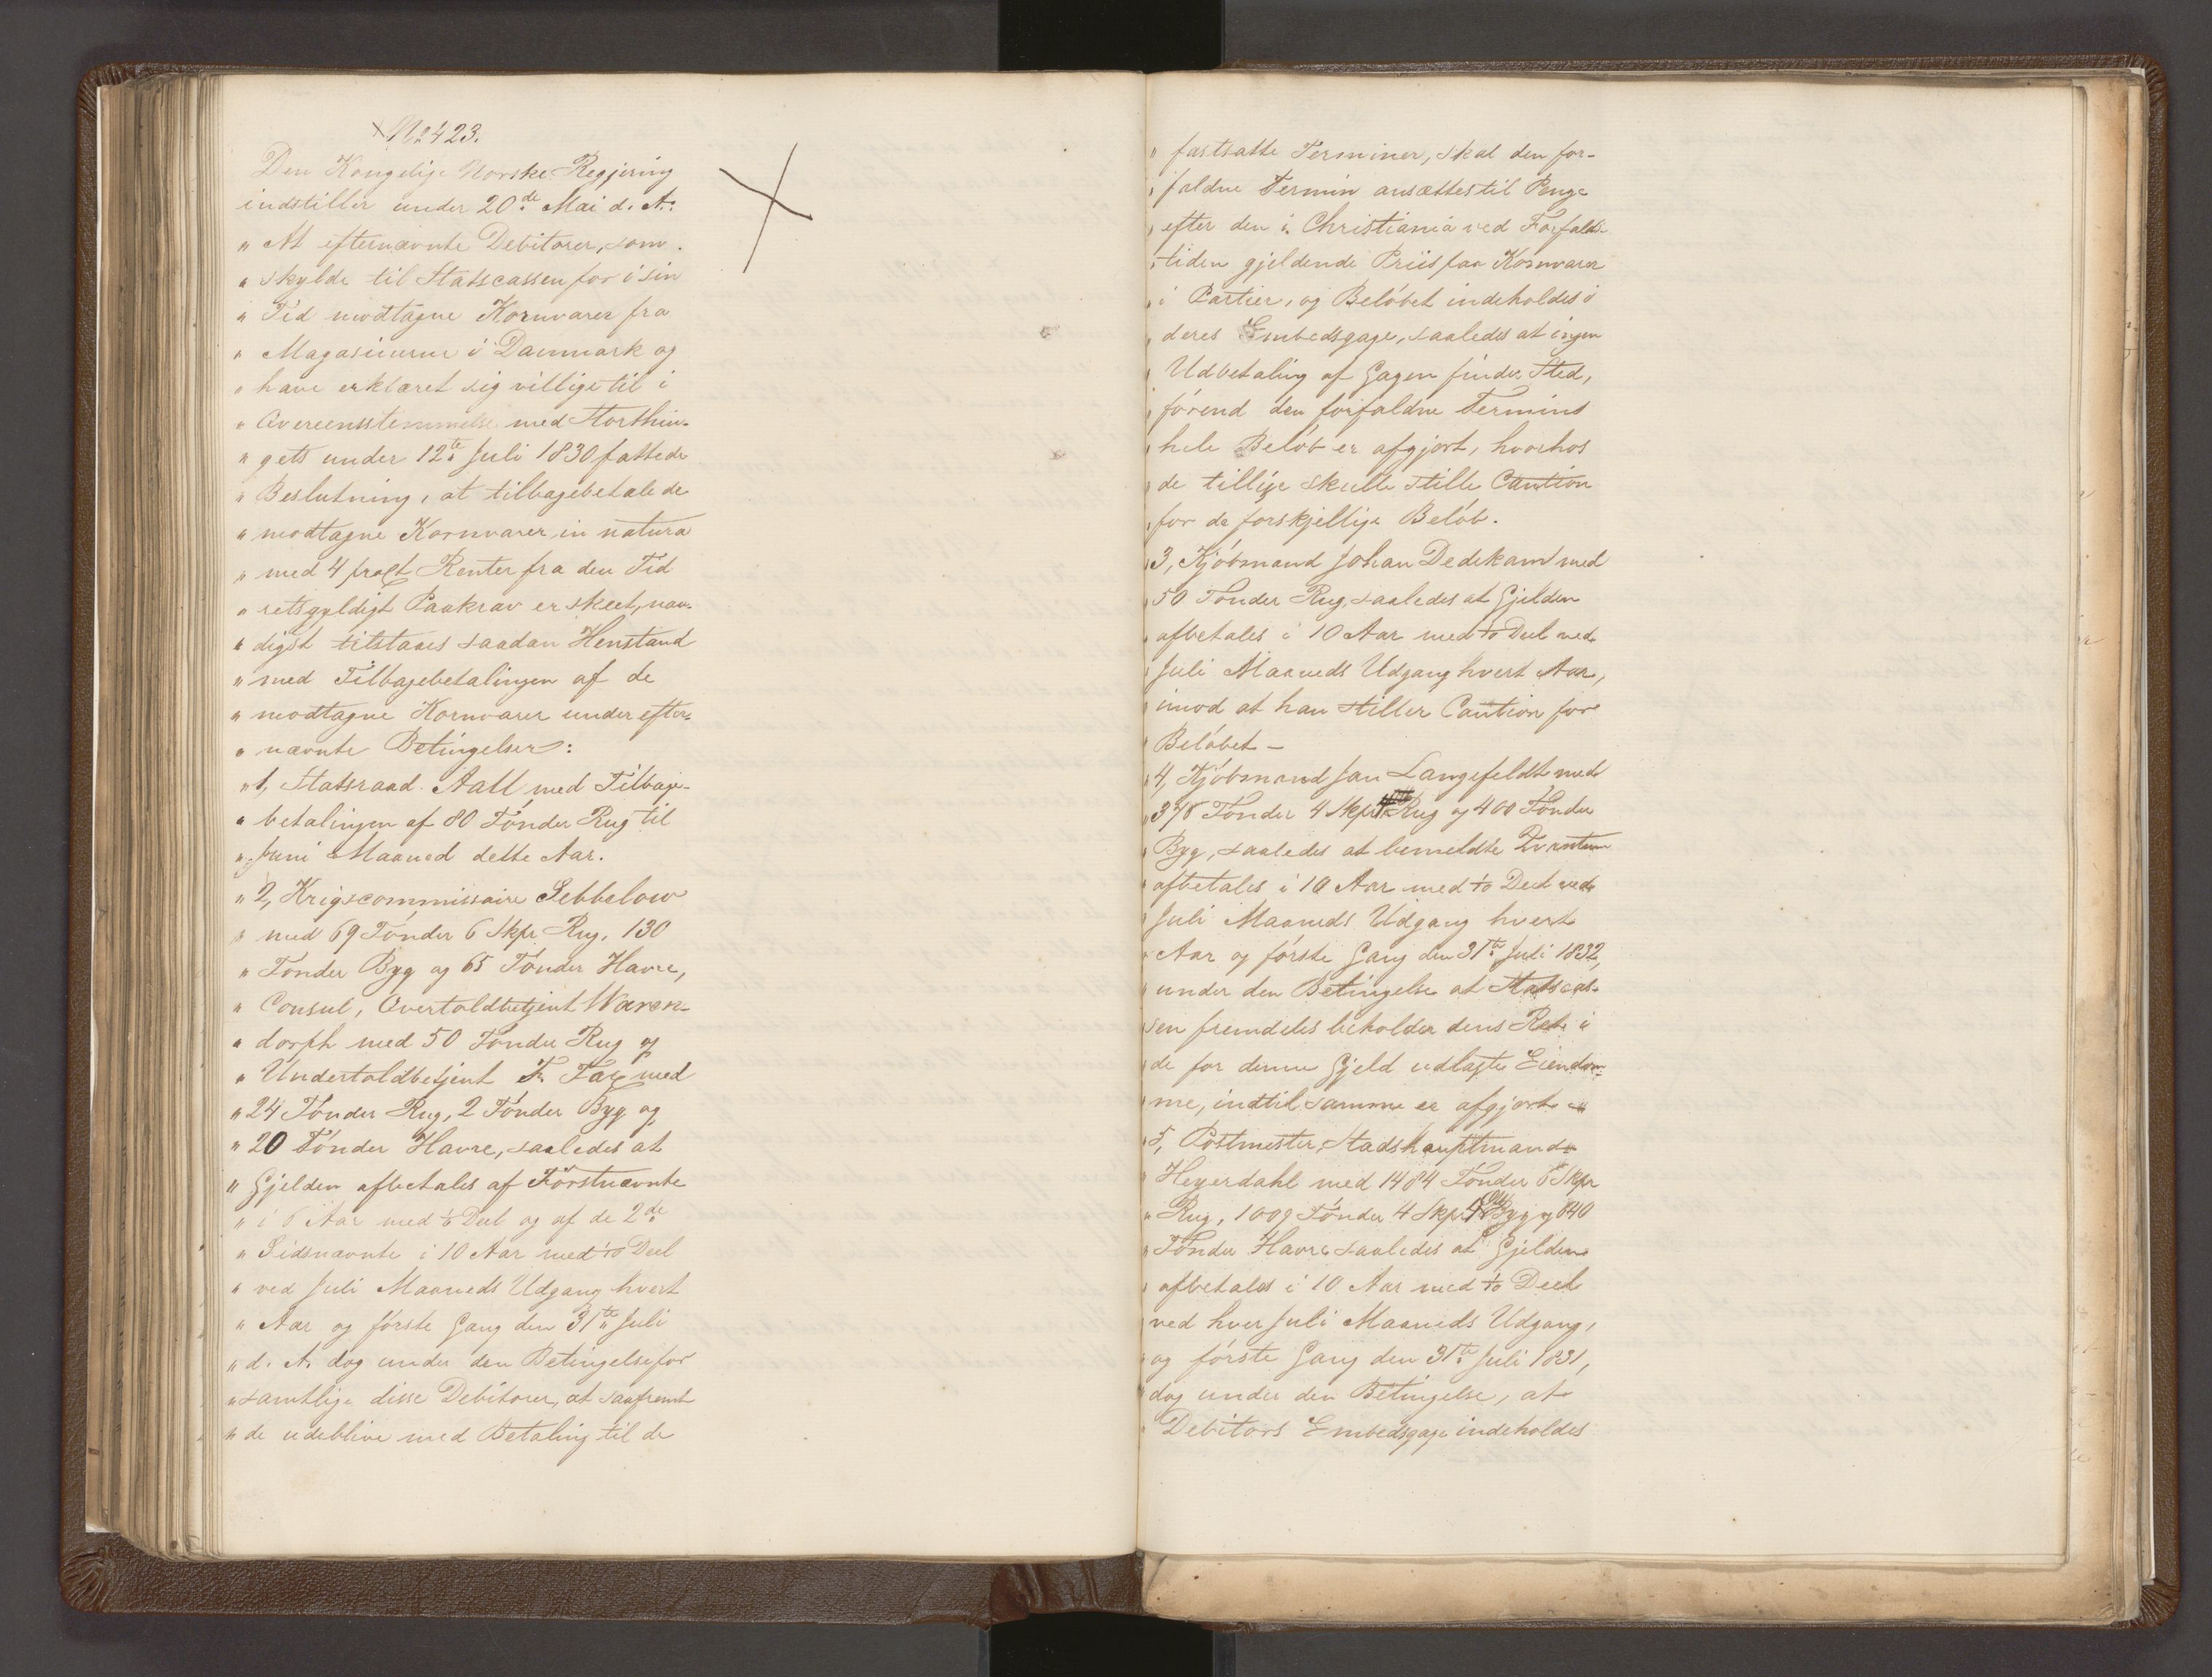 No 423.
Den Kongelige Norske Regjering
indstiller under 20de Mai d. A.:
" At efternævnte Debitorer, som
" skylde til Statscassen for i sin
" Tid modtagne Kornvarer fra
" Magasinerne i Danmark og
" have erklæret sig villige til i
" Overeensstemmelse med Storthin-
" gets under 12te Juli 1830 fattede
" Beslutning, at tilbagebetale de
" modtagne Kornvarer in natura
" med 4 proCt Renter fra den Tid
" retsgyldigt Paakrav er skeet, naa-
" digst tilstaaes saadan Henstand
" med Tilbagebetalingen af de
" modtagne Kornvarer under efter-
" nævnte Betingelser:
" 1, Statsraad Aall, med Tilbage-
" betalingen af 80 Tónder Rug til
" Juni Maaned dette Aar.
" 2, Krigscommissaire Sebbelow
" med 69 Tónder 6 Skpr Rug, 130
" Tónder Byg og 65 Tónder Havre,
" Consul, Overtoldbetjent Waren-
" dorph med 50 Tónder Rug og
" Undertoldbetjent F. Fax med
" 24 Tónder Rug, 2 Tónder Byg og
" 20 Tónder Havre, saaledes at
" Gjelden afbetales af Förstnævnte
" i 6 Aar med 1/6 Deel og af de 2de
" Sidsnævnte i 10 Aar med 1/10 Deel
" ved Juli Maaneds Udgang hvert
" Aar og fórste Gang den 31te Juli
" d. A. dog under den Betingelse for
" samtlige disse Debitorer, at saafremt
" de udeblive med Betaling til de
" fastsatte Terminer, skal den for-
" faldne Termin ansættes til Penge
" efter den i Christiania ved Forfalds-
" tiden gjeldende Priis paa Kornvarer
" i Partier, og Belóbet indeholdes i
" deres Embedsgage, saaledes at ingen
" Udbetaling af Gagen finder Sted,
" fórend den forfaldne Termins
" hele Belób er afgjort, hvorhos
" de tillige skulle stille Caution
" for de forskjellige Belób.
" 3, Kjóbmand Johan Dedekam med
" 50 Tónder Rug, saaledes at Gjelden
" afbetales i 10 Aar med 1/10 Deel ved
" Juli Maaneds Udgang hvert Aar,
" imod at han stiller Caution for
" Belóbet -
" 4, Kjóbmand Jan Langefeldt med
" 378 Tónder 4 Skpr Rug og 400 Tónder
" Byg, saaledes at bemeldte Qvantum
" afbetales i 10 Aar med 1/10 Deel ved
" Juli Maaneds Udgang hvert
" Aar og fórste Gang den 31te Juli 1832,
" under den Betingelse at Statscas-
" sen fremdeles beholder dens Ret i
" de for denne Gjeld udlagte Eiendom-
" me, indtil samme er afgjort
" 5, Postmester, Stadshauptmand
" Heyerdahl med 1484 Tónder 6 Skpr
" Rug, 1009 Tónder 4 Skpr Byg og 640
" Tónder Havre saaledes at Gjelden
" afbetales i 10 Aar med 1/10 Deel
" ved hver Juli Maaneds Udgang,
" og fórste Gang den 31te Juli 1831,
" dog under den Betingelse, at
" Debitors Embedsgage indeholdes